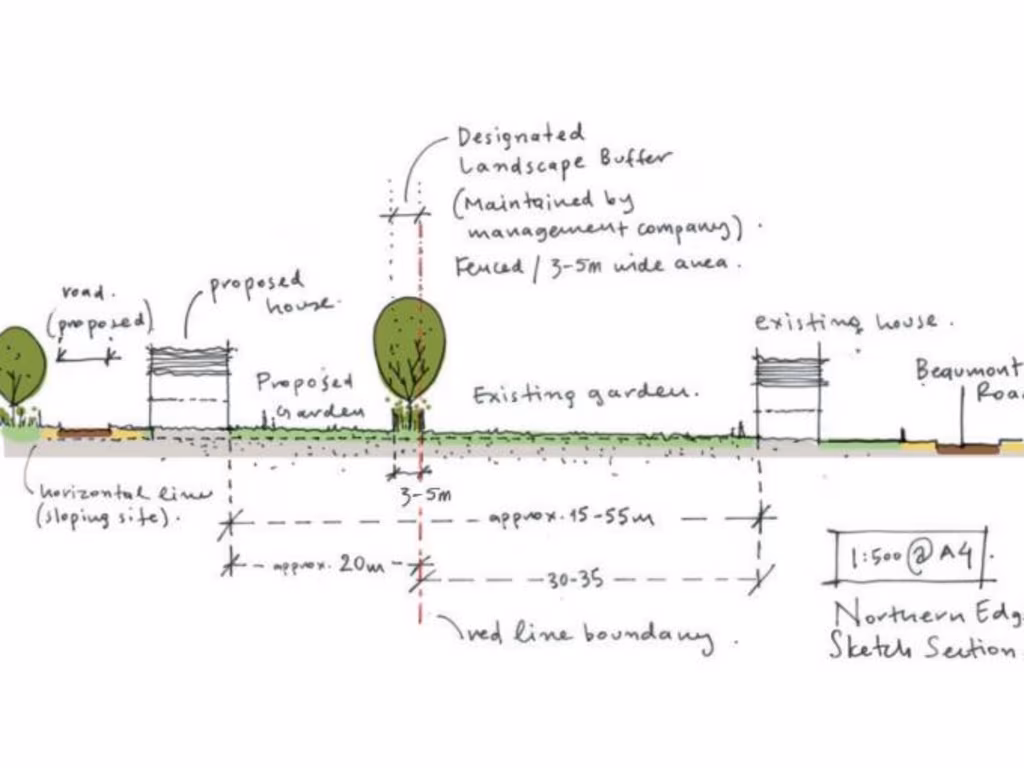 Designated
Landscape Buffer
(Maintained by
management company).
Fenced / 3-5m wide area.
road.
(proposed)
proposed
house.
Proposed
Garden
Existing garden.
existing house.
Beaumont
Road
horizontal line
(sloping site).
3-5m
approx. 15-55m
approx. 20m
30-35
red line boundary.
1:500 @ A4.
Northern Edg
Sketch Section.